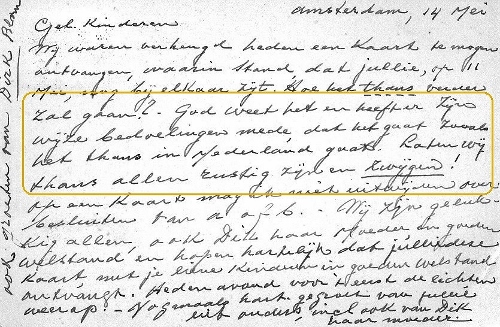 Amsterdam, 14 Mei
Gel. Kinderen
Wij waren verheugd heden een Kaart te mogen
ontvangen, waarin stond, dat jullie, op 11
Mei, nog bij elkaar zijt. Hoe het thans verder
zal gaan? God weet het en heeft er Zijn
wijze bedoelingen mede dat het gaat zooals
het thans in Nederland gaat. Laten wij
thans allen rustig zijn en zwijgen!
op een Kaart mag ik niet uitwijden over
besluiten van a of b. - Wij zijn geluk-
kig allen, ook Dik haar Moeder en goeden
welstand en hopen hartelijk dat jullie deze
Kaart met je lieve Kinderen in goeden welstand
ontvangt. Heden avond voor 't eerst de lichten
weer op! - Nogmaals hart. gegroet van jullie
uit ouders, en al ook van Dik
haar moeder.
ook groeten van Dirk Blom